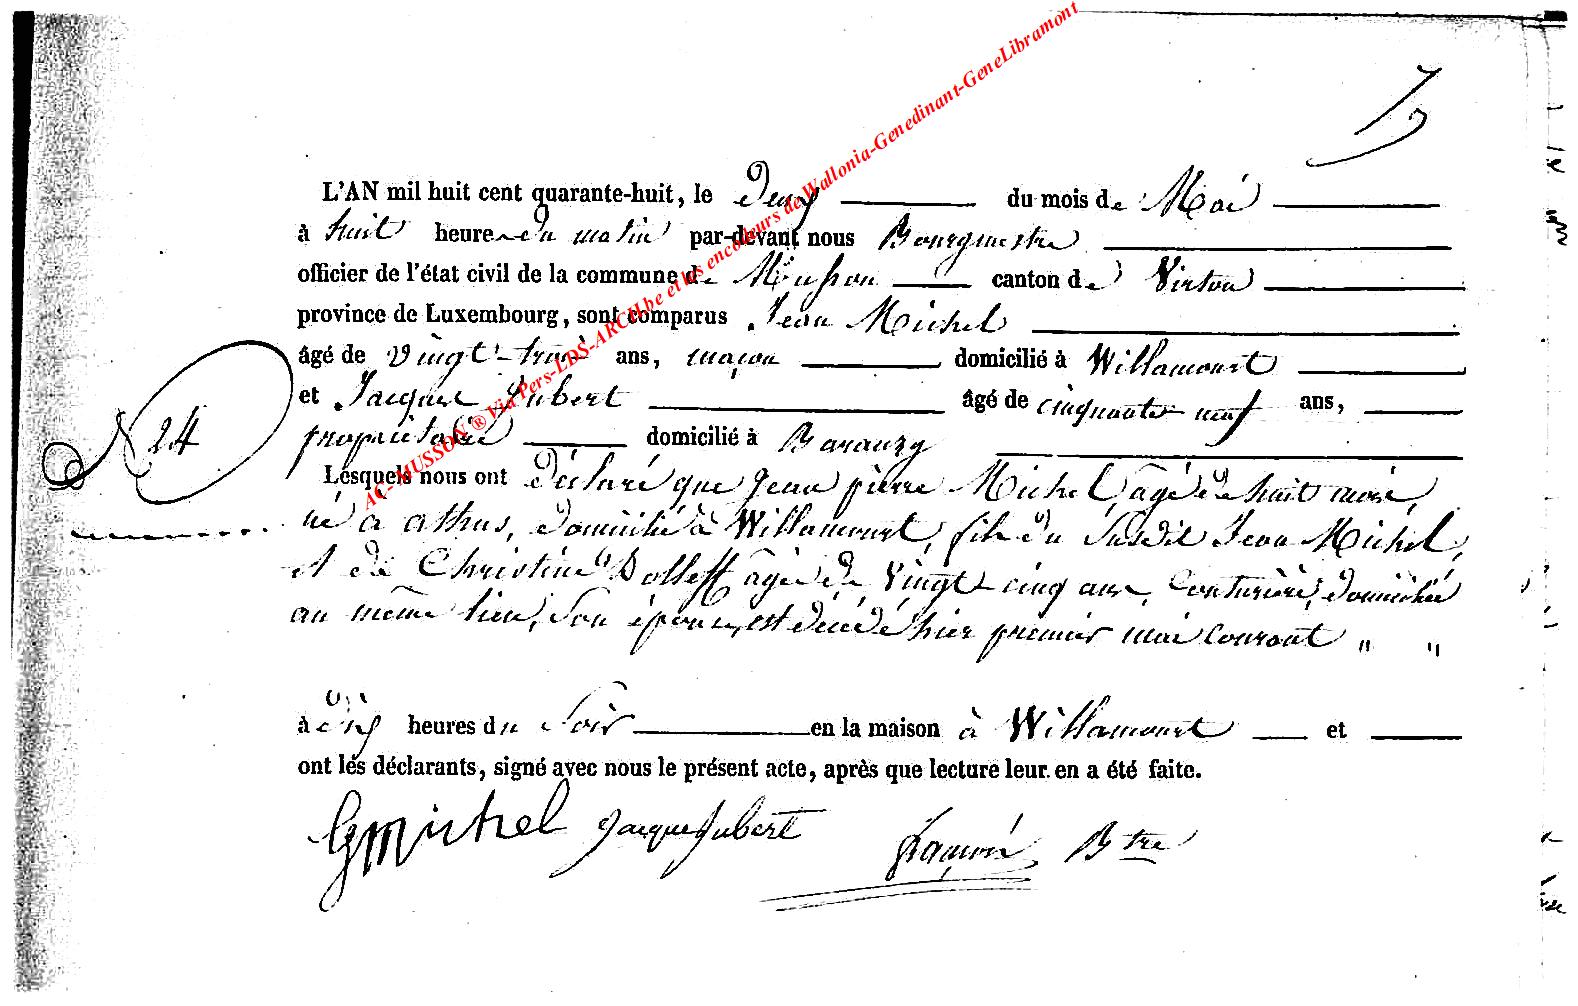 AC-MUSSON ® Via Pers-LDS-ARCH.be et les encodeurs de Wallonia-Genedinant-GeneLibramont
L'AN mil huit cent quarante-huit, le Deux du mois de Mai
à huit heures du matin par-devant nous Bourgmestre
officier de l'état civil de la commune de Musson canton de Virton
province de Luxembourg, sont comparus Jean Michel
âgé de vingt-trois ans, maçon domicilié à Willancourt
et Jacques Hubert âgé de cinquante neuf ans,
N 24
propriétaire domicilié à Baranzy
Lesquels nous ont déclaré que Jean pierre Michel, âgé de huit mois,
né à athus, domicilié à Willancourt, fils du susdit Jean Michel,
et de Christine âgée de Vingt-cinq ans, Couturière, domiciliée
au même lieu, son épouse, est décédé hier premier mai courant " "
à dix heures du soir en la maison à Willancourt et
ont les déclarants, signé avec nous le présent acte, après que lecture leur en a été faite.
michel Jacque hubert Btre